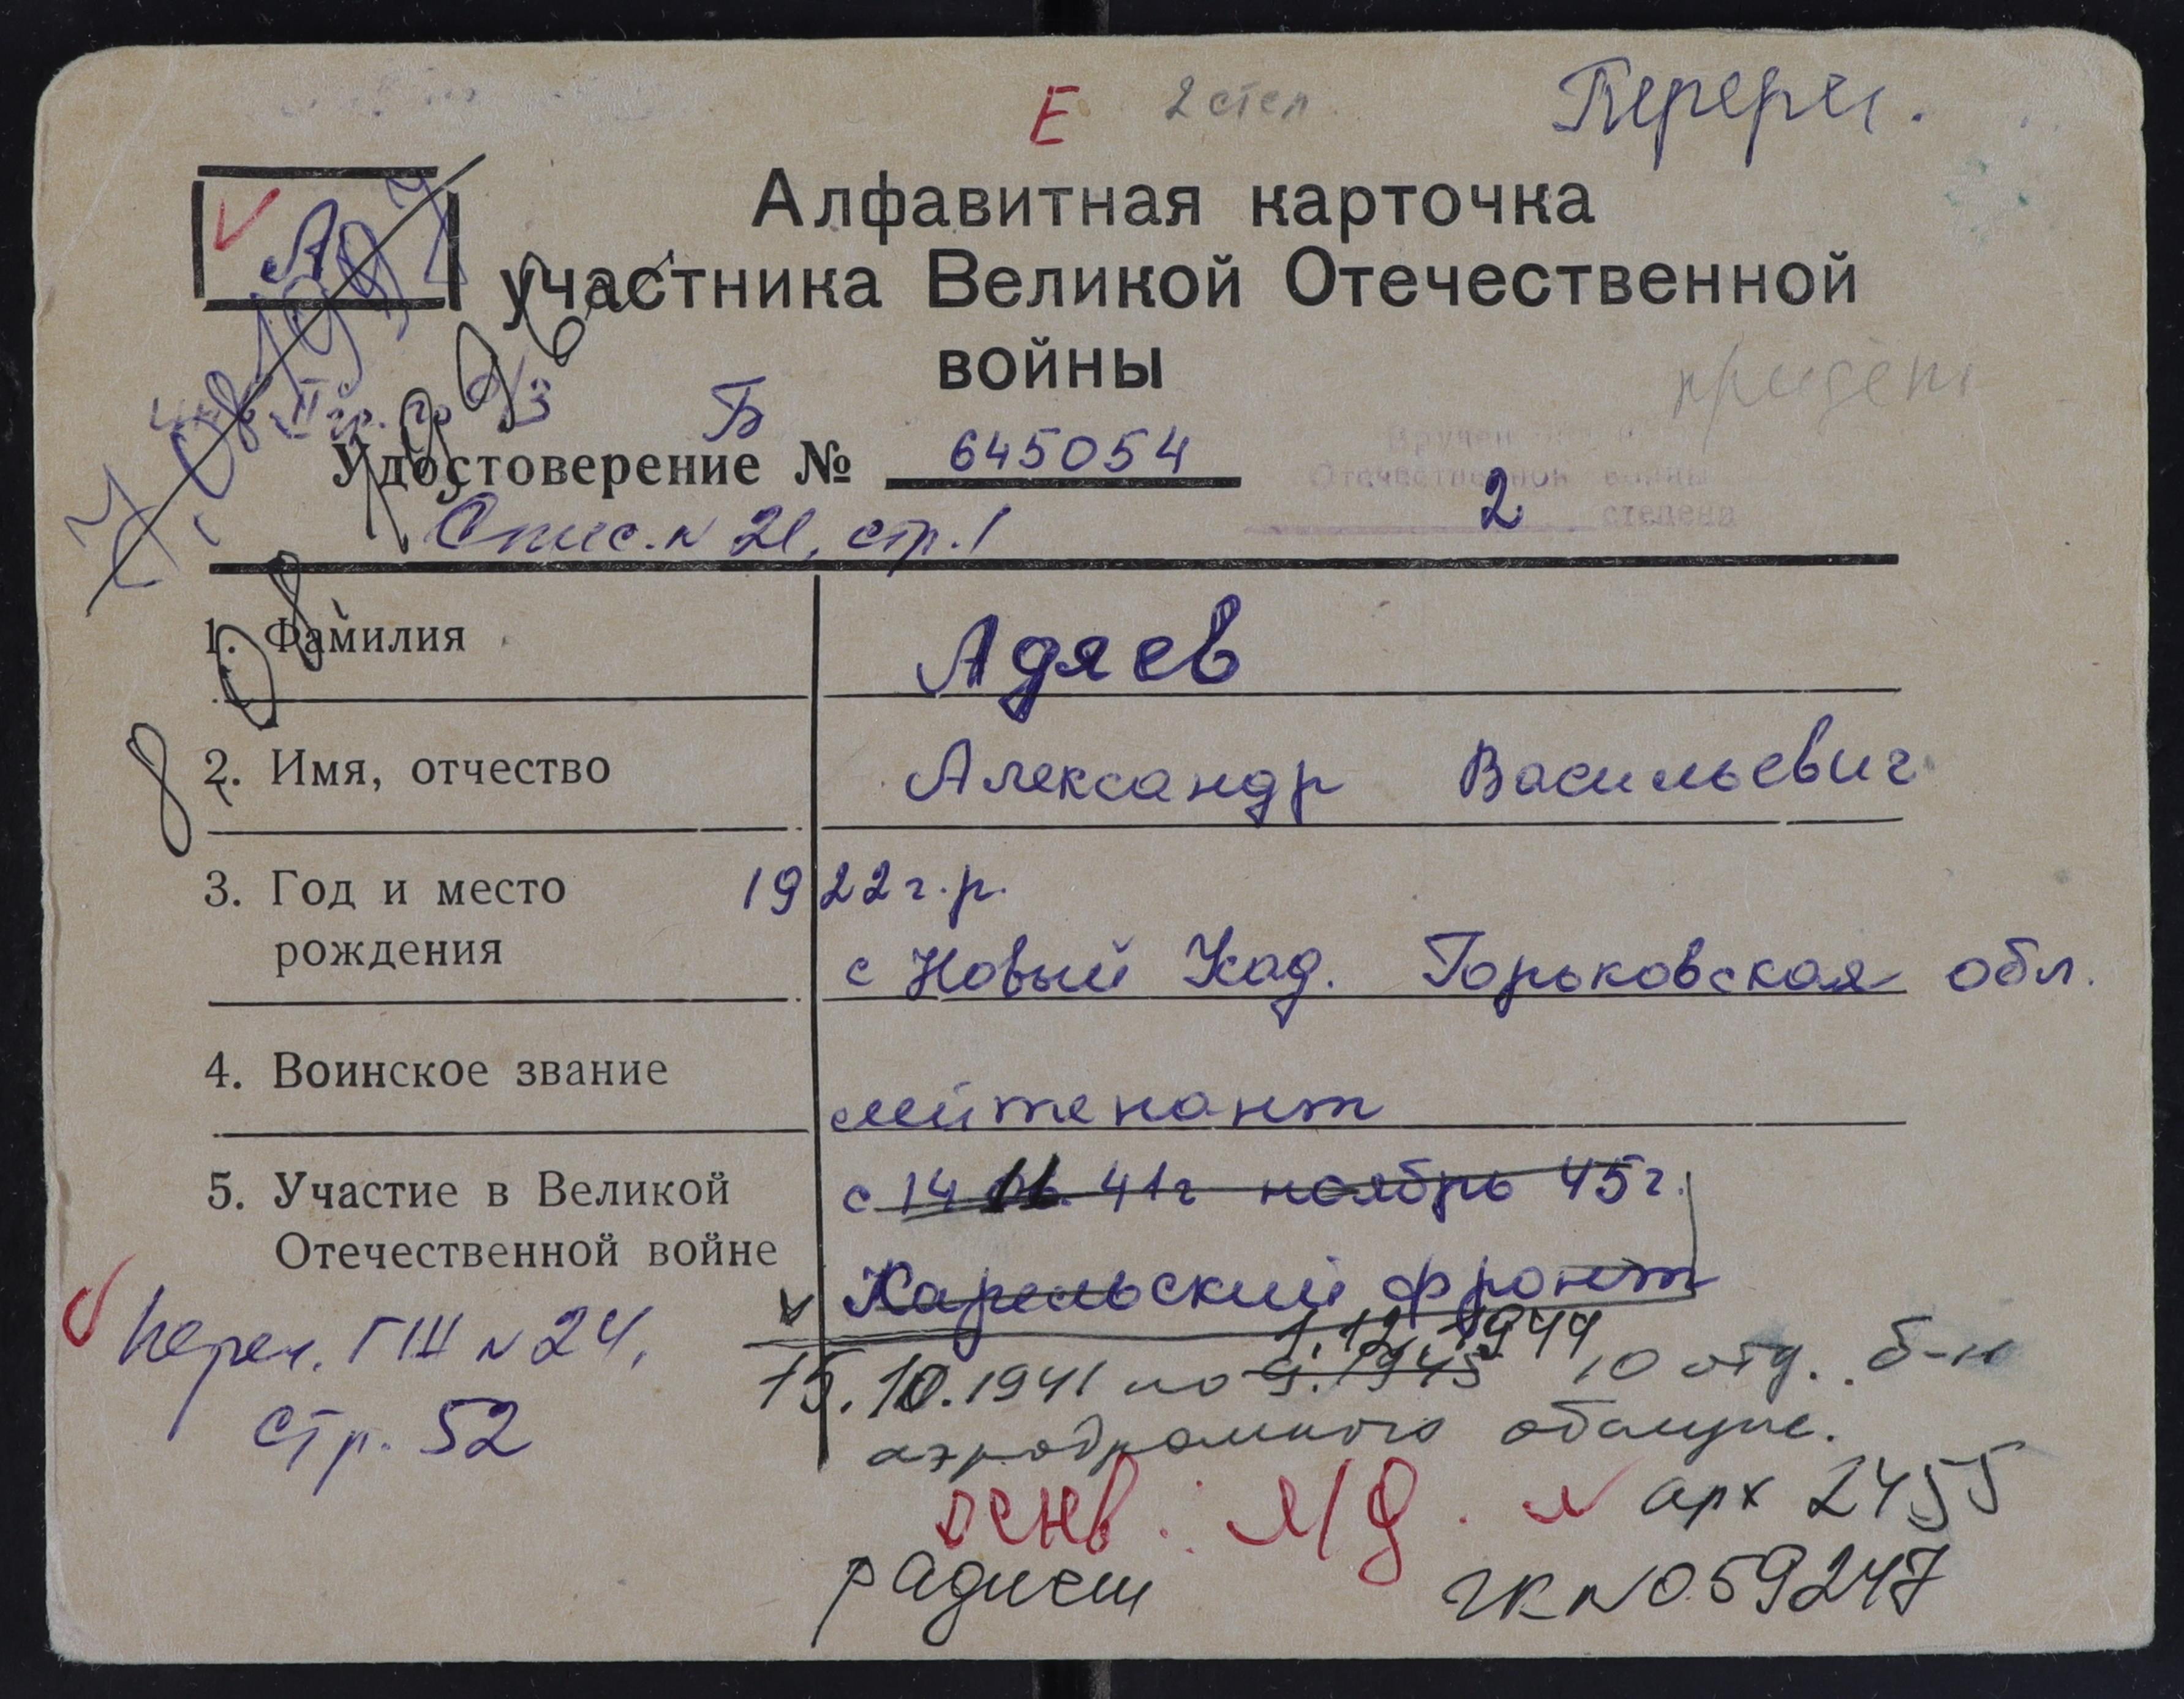 Е 2 степ. Перерег.
Алфавитная карточка
участника Великой Отечественной
войны
Б
Удостоверение № 645054
Отечественной войны
2 степени
Спис. № 21, стр. 1
1. Фамилия Адяев
2. Имя, отчество Александр Васильевич
3. Год и место рождения 1922 г.р.
с Новый Кад. Горьковская обл.
4. Воинское звание лейтенант
5. Участие в Великой Отечественной войне с 14 11. 41г ноябрь 45г.
Карельский фронт
1.12.1944
15.10.1941 по 9.1945 10 отд. б-н
аэродромного обслуж.
Переч. ГШ № 24,
стр. 52
основ: л/д. арх 2455
радист ГК № 059247